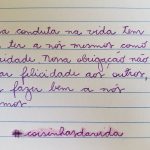 a conduta na vida tem
ter a nós mesmos como
cidade Nossa obrigação não
ar felicidade aos outros,
fazer bem a nós
smos
#coisinhasdaveda